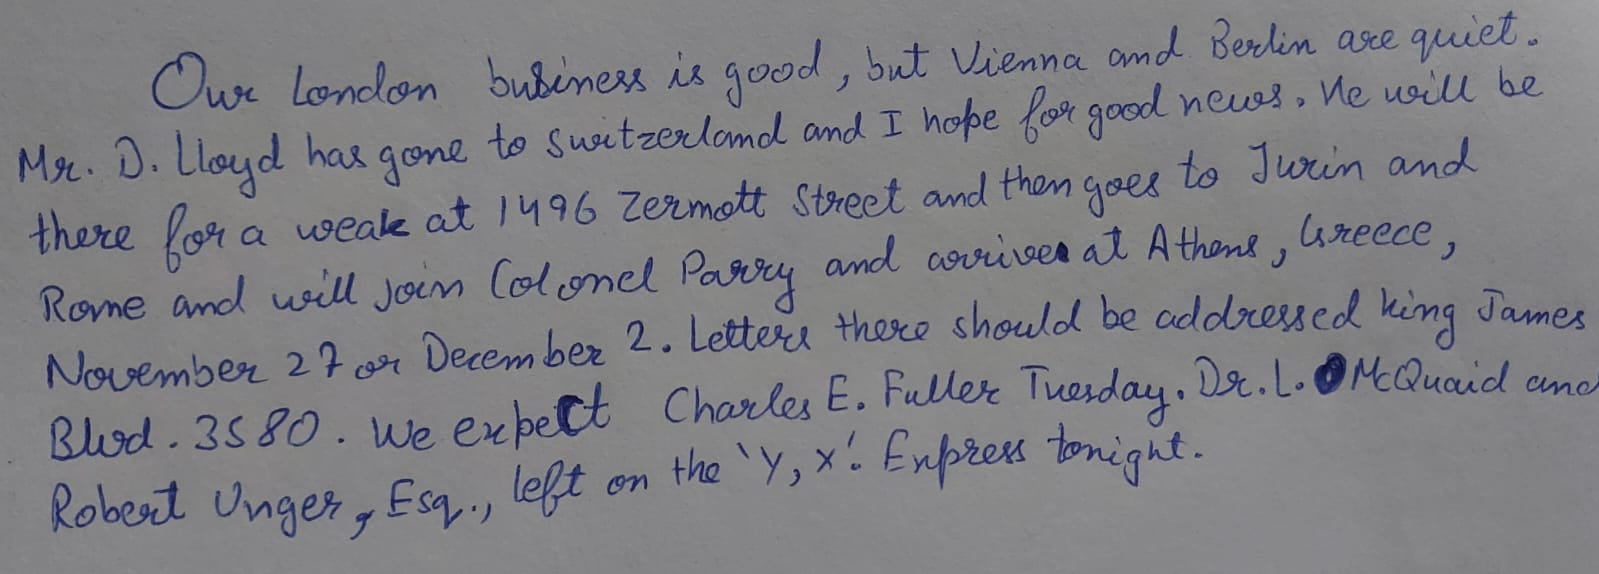 Our London business is good, but Vienna and Berlin are quiet.
Mr. D. Lloyd has gone to Switzerland and I hope for good news. He will be
there for a weak at 1496 Zermott Street and then goes to Turin and
Rome and will join Colonel Parry and arrives at Athens, Greece,
November 27 or December 2. Letters there should be addressed king James
Blvd. 3580. We expect Charles E. Fuller Tuesday. Dr. L. McQuaid and
Robert Unger, Esq., left on the 'Y, X'. Express tonight.